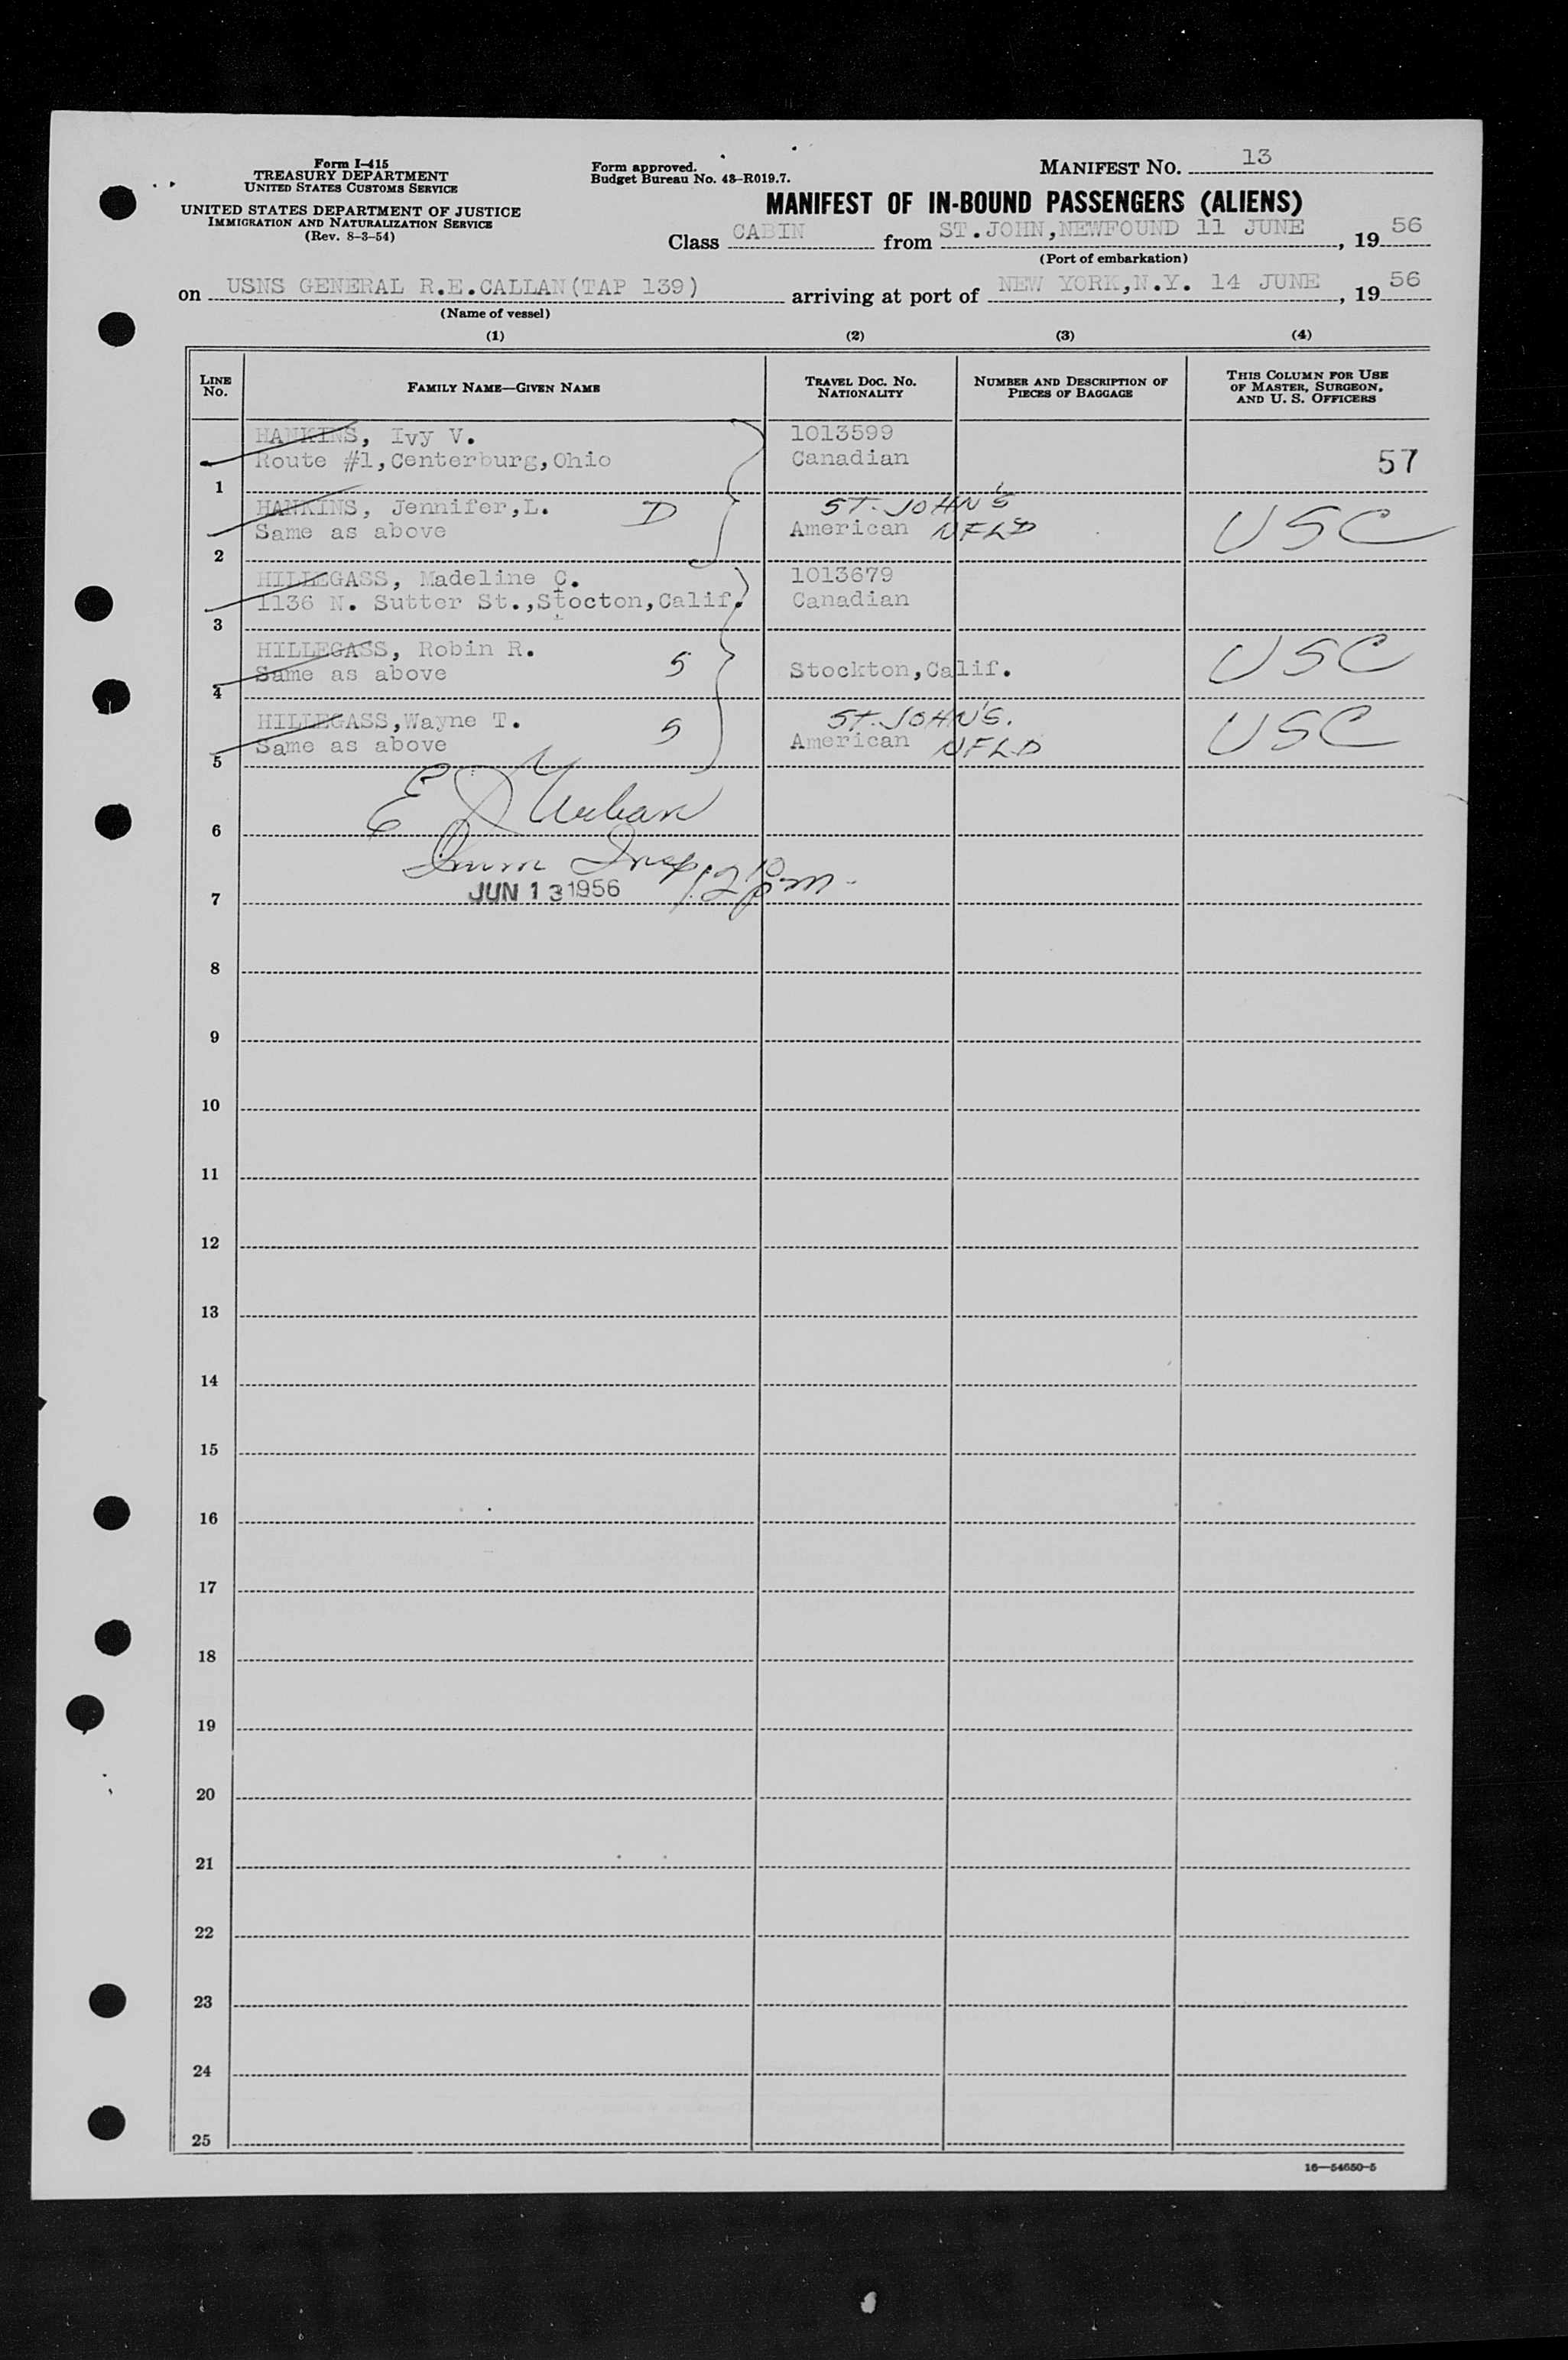 Form I-415
TREASURY DEPARTMENT
UNITED STATES CUSTOMS SERVICE
UNITED STATES DEPARTMENT OF JUSTICE
IMMIGRATION AND NATURALIZATION SERVICE
(Rev. 8-3-54)
Form approved.
Budget Bureau No. 43-R019.7.
MANIFEST NO. 13
MANIFEST OF IN-BOUND PASSENGERS (ALIENS)
Class CABIN from ST.JOHN,NEWFOUND 11 JUNE, 19 56
(Port of embarkation)
on USNS GENERAL R.E.CALLAN(TAP 139) arriving at port of NEW YORK,N.Y. 14 JUNE, 19 56
(Name of vessel)
(1) (2) (3) (4)
LINE No. FAMILY NAME—GIVEN NAME TRAVEL DOC. NO. NATIONALITY NUMBER AND DESCRIPTION OF PIECES OF BAGGAGE THIS COLUMN FOR USE OF MASTER, SURGEON, AND U. S. OFFICERS
HANKINS, Ivy V. 1013599
Route #1,Centerburg,Ohio Canadian 57
1
HANKINS, Jennifer,L. D ST. JOHN'S
Same as above American NFLD USC
2
HILLEGASS, Madeline C. 1013679
1136 N. Sutter St.,Stocton,Calif. Canadian
3
HILLEGASS, Robin R. S USC
Same as above Stockton,Calif.
4
HILLEGASS,Wayne T. S ST. JOHN'S.
Same as above American NFLD USC
5
E J Urban
6
Imm Insp
JUN 13 1956
7
8
9
10
11
12
13
14
15
16
17
18
19
20
21
22
23
24
25
16—54650-5